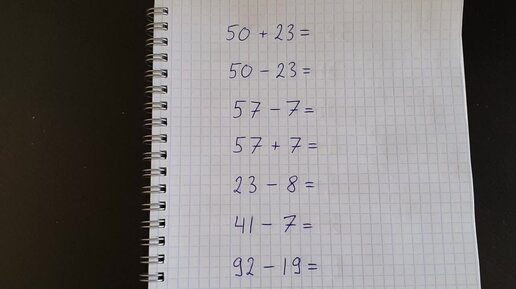 50 + 23 =
50 - 23 =
57 - 7 =
57 + 7 =
23 - 8 =
41 - 7 =
92 - 19 =